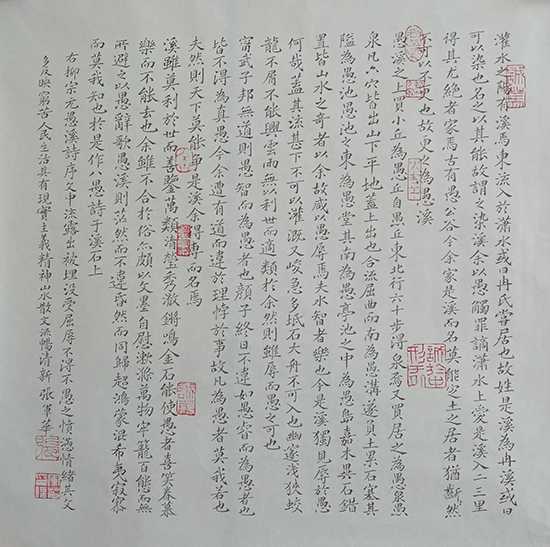 灌水之陽有溪焉東流入於瀟水或曰冉氏嘗居也故姓是溪為冉溪或曰
可以染也名之以其能故謂之染溪余以愚觸罪謫瀟水上愛是溪入二三里
得其尤絕者家焉古有愚公谷今余家是溪而名莫能定土之居者猶齗然
不可以不更也故更之為愚溪
愚溪之上買小丘為愚丘自愚丘東北行六十步得泉焉又買居之為愚泉愚
泉凡六穴皆出山下平地蓋上出也合流屈曲而南為愚溝遂負土累石塞其
隘為愚池愚池之東為愚堂其南為愚亭池之中為愚島嘉木異石錯
置皆山水之奇者以余故咸以愚辱焉夫水智者樂也今是溪獨見辱於愚
何哉蓋其流甚下不可以灌溉又峻急多坻石大舟不可入也幽邃淺狹蛟
龍不屑不能興雲雨無以利世而適類於余然則雖辱而愚之可也
甯武子邦無道則愚智而為愚者也顏子終日不違如愚睿而為愚者也
皆不得為真愚今余遭有道而違於理悖於事故凡為愚者莫我若也
夫然則天下莫能爭是溪余得專而名焉
溪雖莫利於世而善鑒萬類清瑩秀澈鏘鳴金石能使愚者喜笑眷慕
樂而不能去也余雖不合於俗亦頗以文墨自慰漱滌萬物牢籠百態而無
所避之以愚辭歌愚溪則茫然而不違昏然而同歸超鴻蒙混希夷寂寥
而莫我知也於是作八愚詩于溪石上
右柳宗元愚溪詩序文中流露出被埋沒受屈辱不得不愚之憤懣情緒其文
多反映窮苦人民生活具有現實主義精神山水散文流暢清新 張軍華